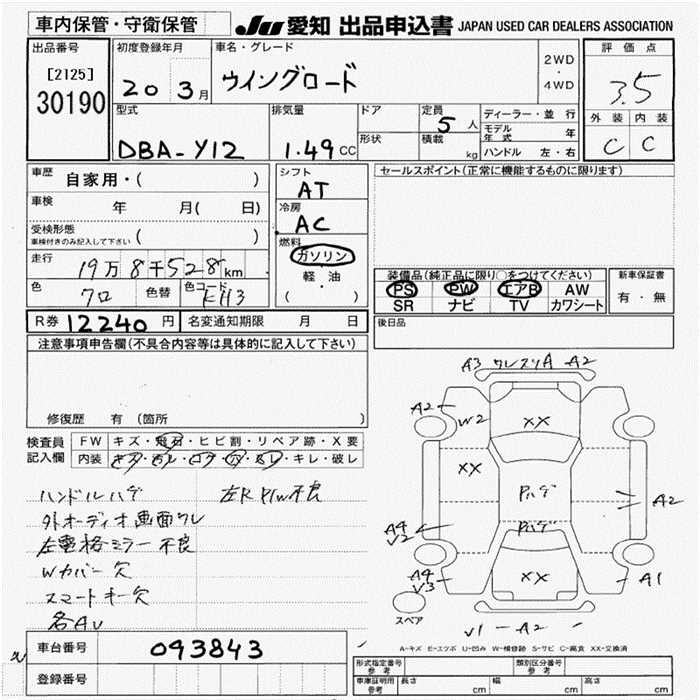 車内保管・守衛保管 JU 愛知 出品申込書 JAPAN USED CAR DEALERS ASSOCIATION
出品番号 初度登録年月 車名・グレード 評価点
[2125] 20 3月 ウイングロード 2WD・4WD 3.5
30190
型式 排気量 ドア 定員 ディーラー・並行 外装 内装
DBA-Y12 1.49 CC 形状 積載 5人 kg モデル年式 年 C C
ハンドル 左・右
車歴 自家用・( ) シフト セールスポイント(正常に機能するものに限ります)
AT
車検 年 月( 日) 冷房
AC
受検形態 ( )
車検付きのみ記入して下さい
燃料
ガソリン
軽・油
( )
走行 19万8千528km 装備品(純正品に限り○をつけてください) 新車保証書
PS PW エアB AW 有・無
SR ナビ TV カワシート
色 クロ 色替 色コード KH3
R券 12240円 名変通知期限 月 日 後日品
注意事項申告欄(不具合内容等は具体的に記入して下さい)
修復歴 有 (箇所 )
検査員記入欄 FW キズ・飛石・ヒビ割・リペア跡・X要
内装 キズ・汚レ・コゲ・穴・スレ・キレ・破レ
ハンドルハゲ 左R P/W不良
外オーディオ画面ワレ
左電格ミラー不良
Wカバー欠
スマートキー欠
各AU
A3 ワレスリA A2
A2 W2 XX
XX Pハゲ A2
A4 V2 Pハゲ
A4 V3 XX A1
スペア
V1 A2
A-キズ E-エクボ U-凹み W-補修跡 S-サビ C-腐食 XX-交換済
車台番号 093843
登録番号
形式指定番号 参考 類別区分番号 参考
車庫証明用 参考 長さ cm 幅 cm 高さ cm